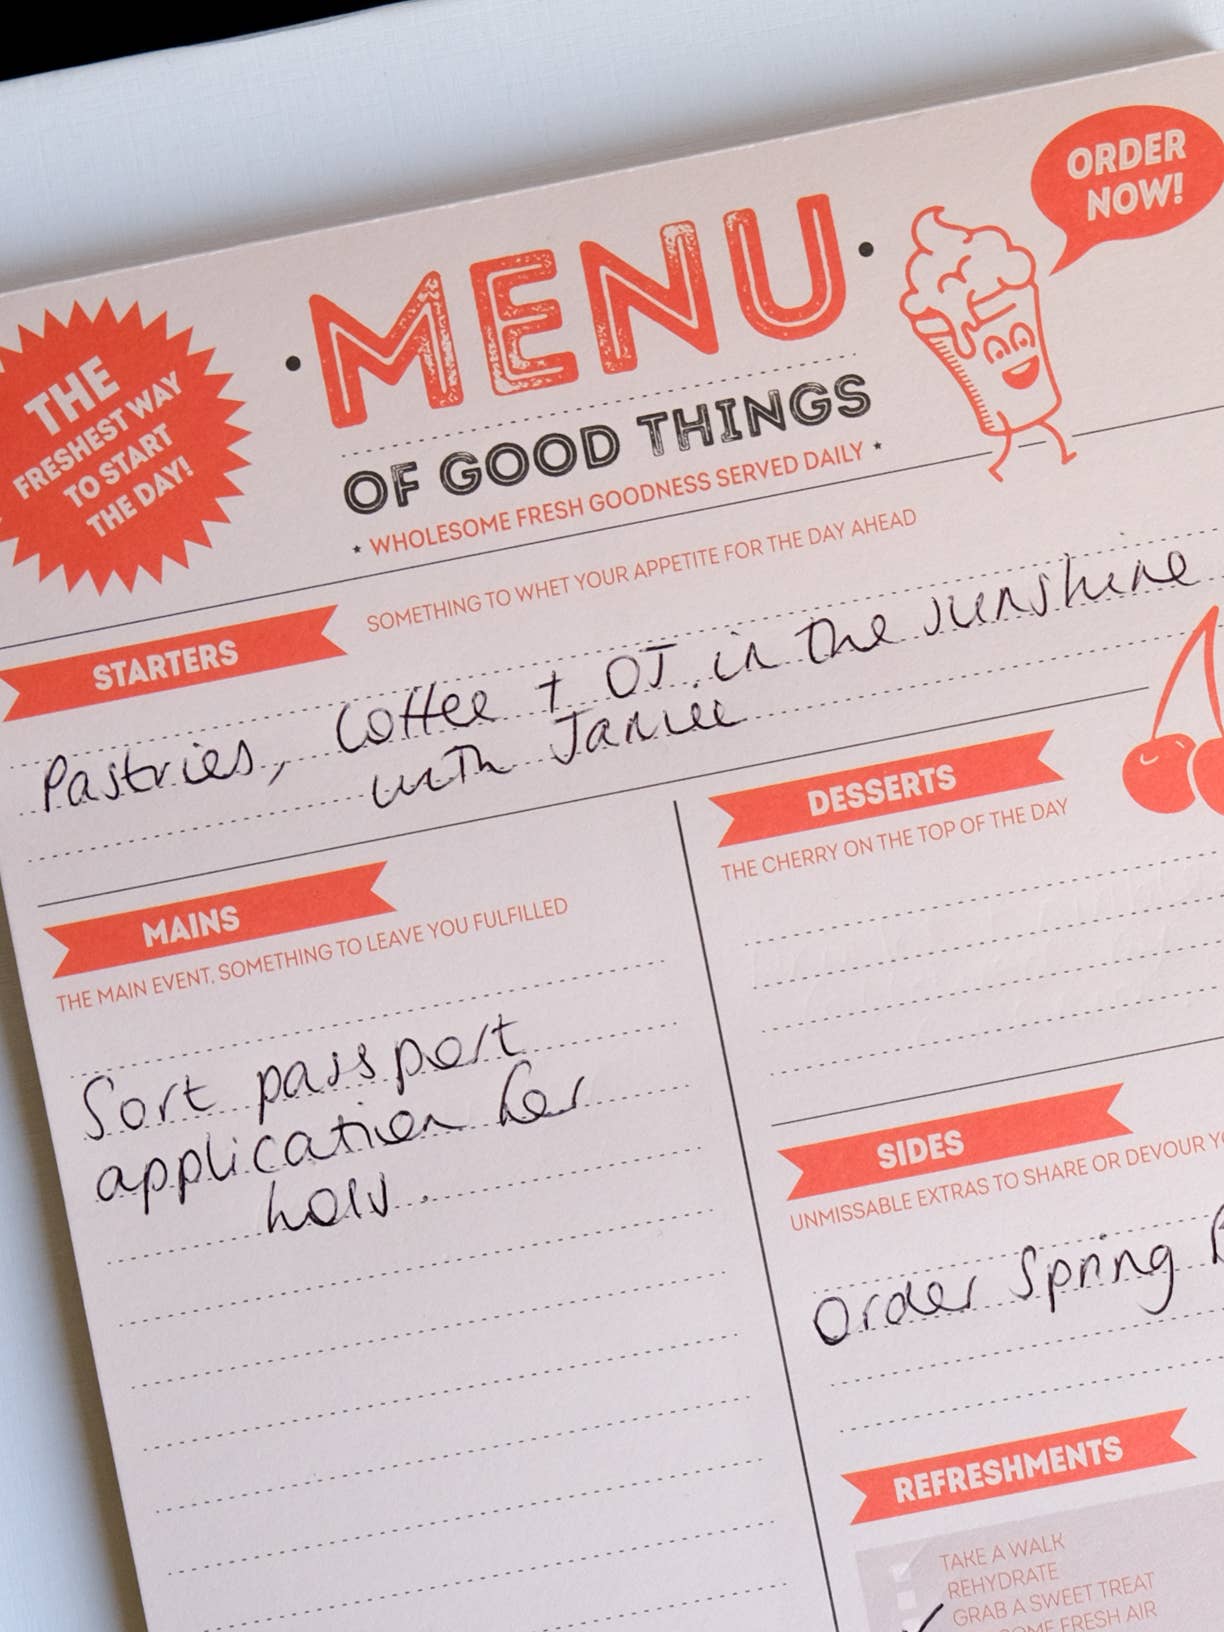 ORDER
NOW!
MENU
OF GOOD THINGS
WHOLESOME FRESH GOODNESS SERVED DAILY
THE
FRESHEST WAY
TO START
THE DAY!
STARTERS
SOMETHING TO WHET YOUR APPETITE FOR THE DAY AHEAD
Pastries, Coffee + OJ in the sunshine
with
MAINS
THE MAIN EVENT, SOMETHING TO LEAVE YOU FULFILLED
Sort passport
application for
hols.
DESSERTS
THE CHERRY ON THE TOP OF THE DAY
SIDES
UNMISSABLE EXTRAS TO SHARE OR DEVOUR
Order Spring
REFRESHMENTS
TAKE A WALK
REHYDRATE
GRAB A SWEET TREAT
FRESH AIR